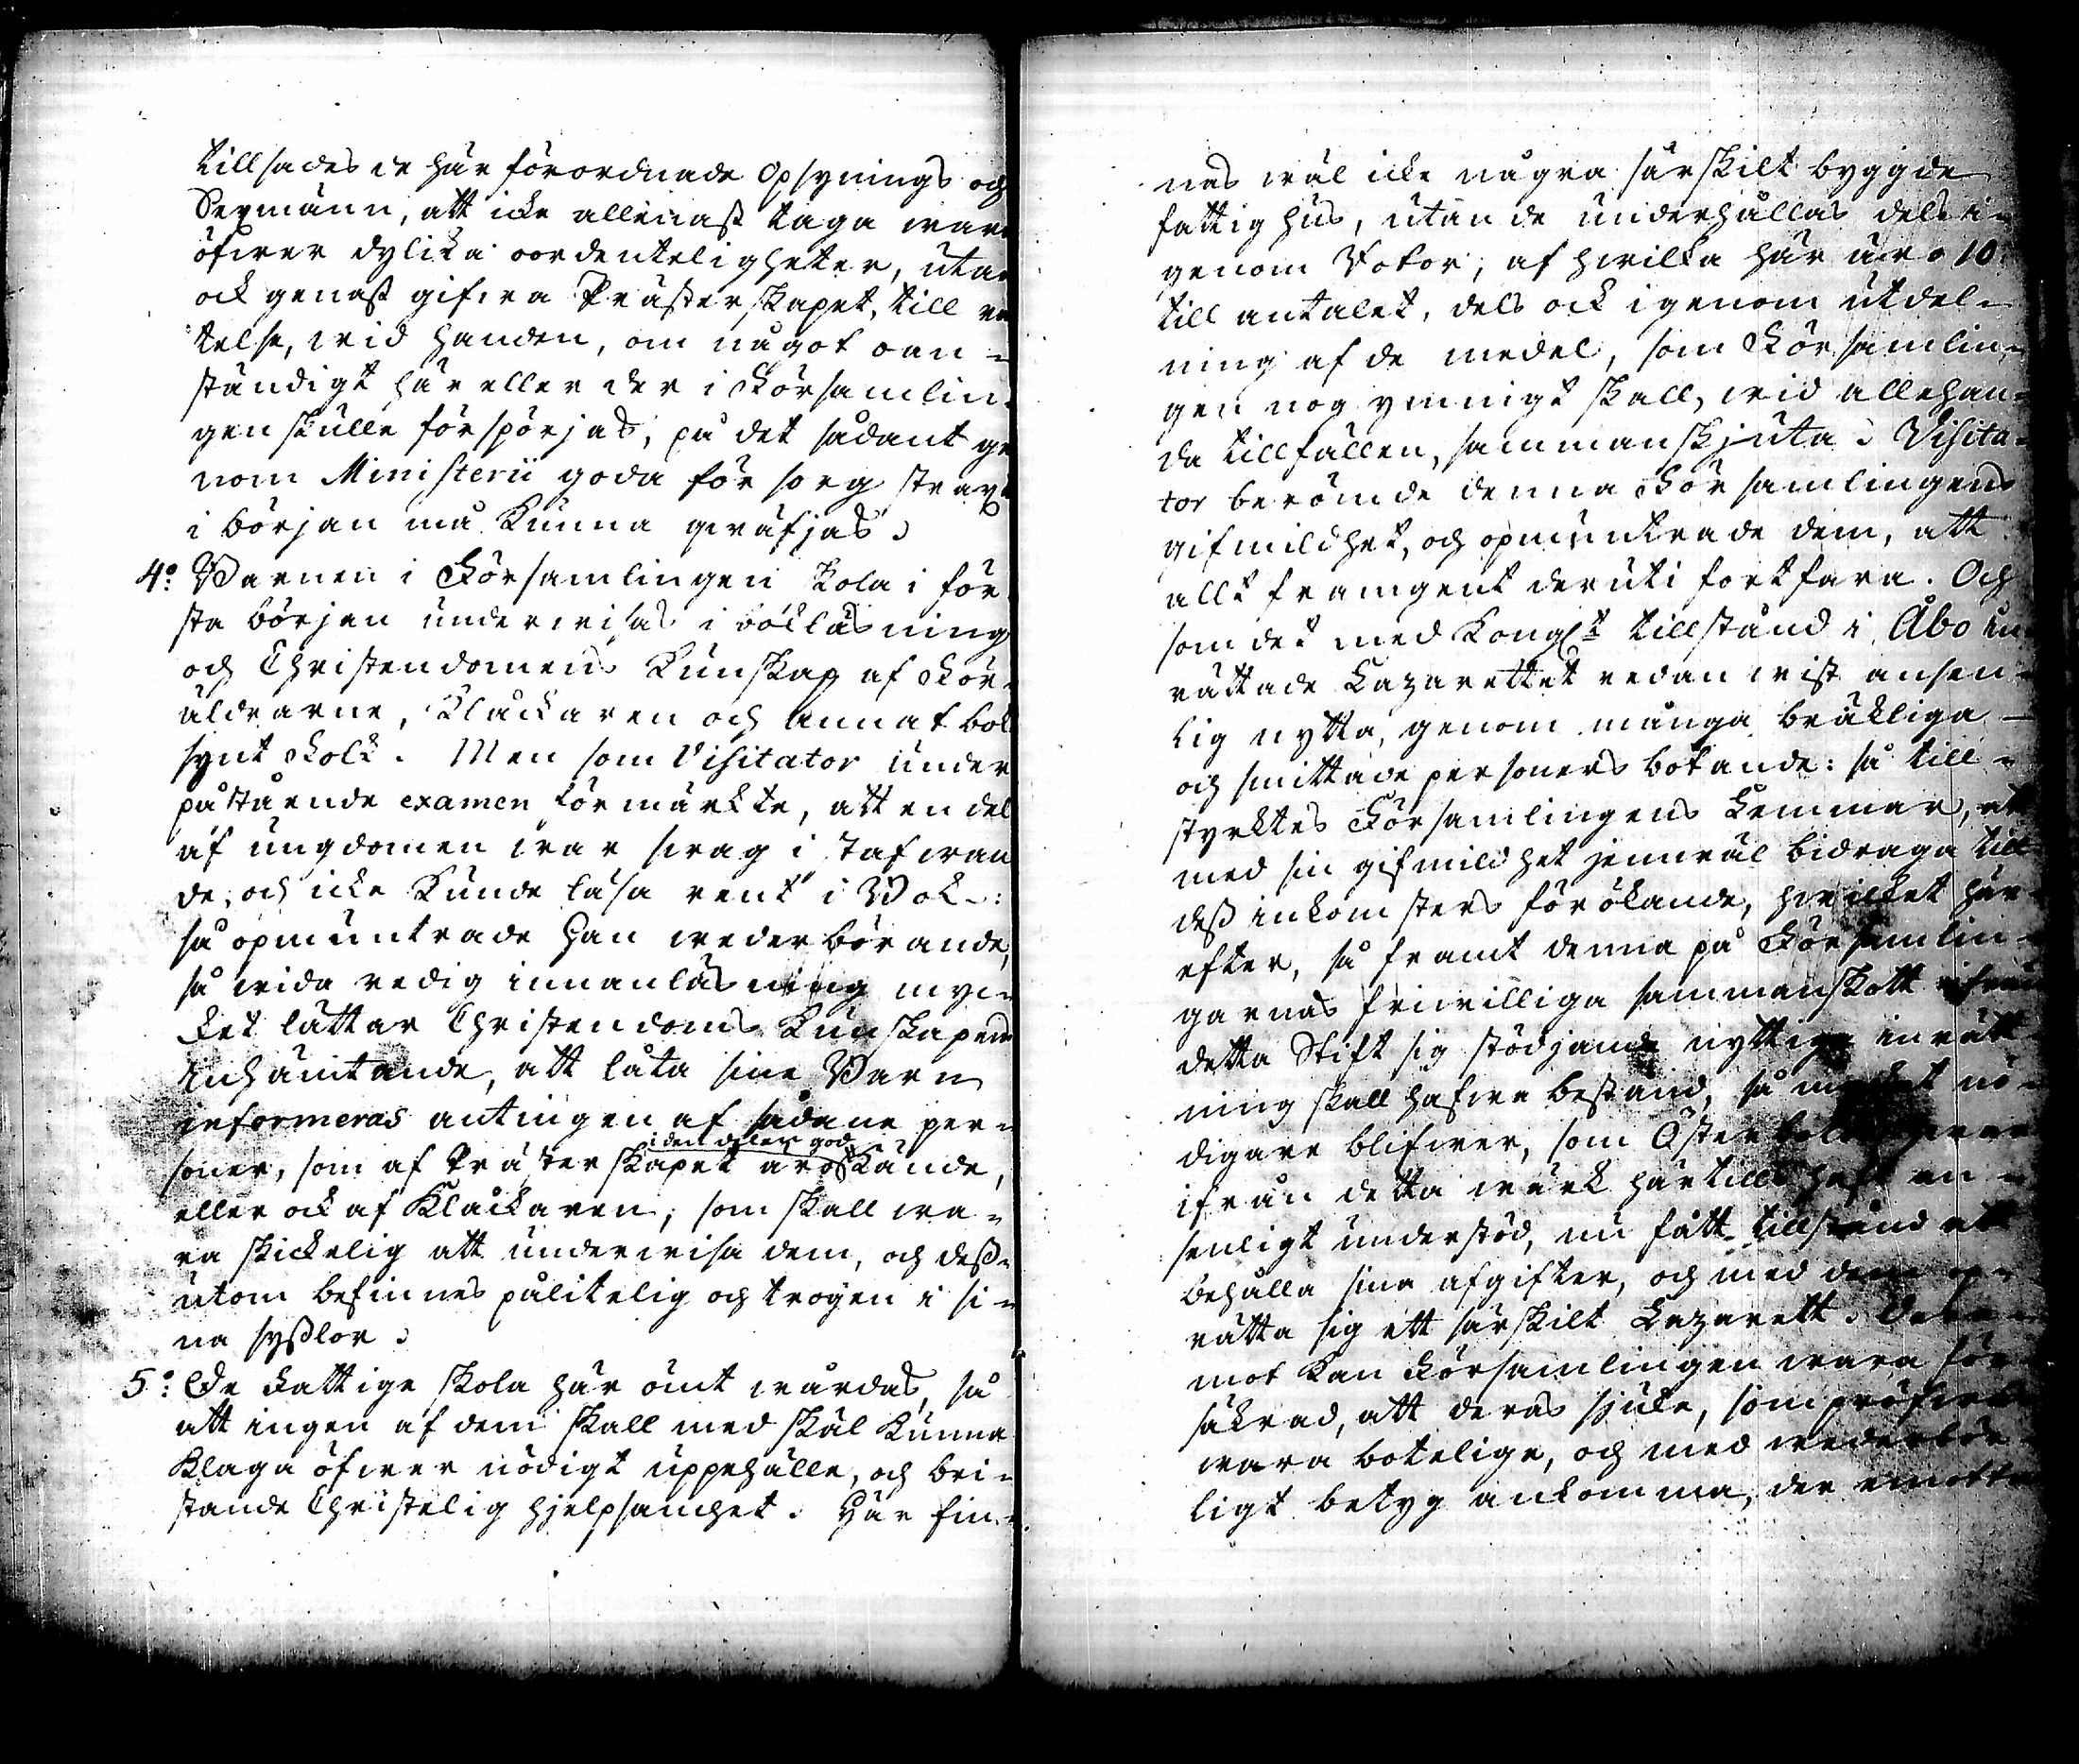 tillsades de här förordnade Opsynings och
Sexmänn, att icke allenast taga ware
öfwer dylika oordenteligheter, utan
ock genast gifwa Prästerskapet, till rä
telse, wid handen, om något oan-
ständigt här eller der i Församlin-
gen skulle förspörjas, på det sådant ge
nom Ministerii goda försorg strax
i början må kunna qwäfjas.
4:o Barnen i Församlingen skola i för
sta början underwisas i bokläsning
och Christendomens Kunskap af För-
äldrarne, Klåckaren och annat bok
synt Folk. Men som Visitator under
påstående examen förmärkte, att en del
af ungdomen war swag i stafwan
de, och icke kunde läsa rent i Bok:
så opmuntrade han wederbörande,
så wida redig innanläsning myc-
ket lättar Christendoms Kunskapens
inhämtande, att låta sine Barn
informeras antingen af sådane per-
i den delen god
soner, som af Prästerskapet äro kände,
eller ock af Klåckaren, som skall wa-
ra skickelig att underwisa dem, och dess-
utom befinnes pålitelig och trogen i si-
na sysslor.
5:o De Fattige skola här ömt wårdas, så
att ingen af dem skall med skäl kunna
klaga öfwer nödigt uppehälle, och bri-
stande Christelig hjelpsamhet. Här fin-
nas wäl icke några särskilt byggde
fattighus, utan de underhållas dels i-
genom Rotor, af hwilka här äro 10
till antalet, dels ock igenom utdel-
ning af de medel, som Församlin-
gen nog ymnigt skall, wid allehan-
da tillfällen, sammanskjuta. Visita-
tor berömde denna Församlingens
gifmildhet, och opmuntrade dem, att
allt framgent deruti fortfara. Och
som det med Kongl:t tillstånd i Åbo in
rättade Lazarettet redan wist ansen-
lig nytta, genom många bräkliga
och smittade personers botande: så till-
styrktes Församlingens Lemmar, att
med sin gifmildhet jemwäl bidraga till
dess inkomsters förökande, hwilket här-
efter, så framt denna på Församlin-
garnas friwilliga sammanskott ifrån
detta Stift sig stödjande nyttiga inrätt-
ning skall hafwa bestånd, så mycket nö-
digare blifwer, som
ifrån detta wärk härtills haft an-
senligt understöd, nu fått tillstånd att
behålla sina afgifter, och med dem op-
rätta sig ett särskilt Lazarett. Der-
mot kan Församlingen wara för
säkrad, att deras sjuke, som pröfwas
wara botelige, och med wederbör-
ligt betyg ankomma, der emotta